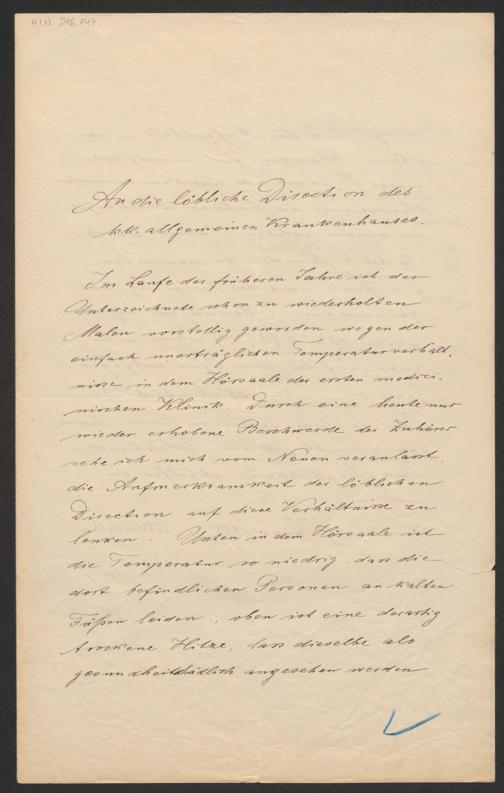 HIN 246147
An die löbliche Direction des
kk. allgemeinen Krankenhauses.
Im Laufe der früheren Jahre ist der
Unterzeichnete schon zu wiederholten
Malen vorstellig geworden wegen der
einfach unerträglichen Temperaturverhält-
nisse in dem Hörsaale der ersten medici-
nischen Klinik. Durch eine heute nur
wieder erhobene Beschwerde der Zuhörer
sehe ich mich vom Neuen veranlasst,
die Aufmerksamkeit der löblichen
Direction auf diese Verhältnisse zu
lenken. Unten in dem Hörsaale ist
die Temperatur so niedrig, dass die
dort befindlichen Personen an kalten
Füßen leiden, oben ist eine derartig
trockene Hitze, dass dieselbe als
gesundheitschädlich angesehen werden